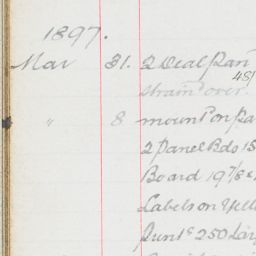 1897.
Mar 31. 2 Deal Pan
48
strain over
" 8 mount on Pa
2 Panel Bds 15
Board 19 1/8
Labels on Yell
Punts 250 Lar